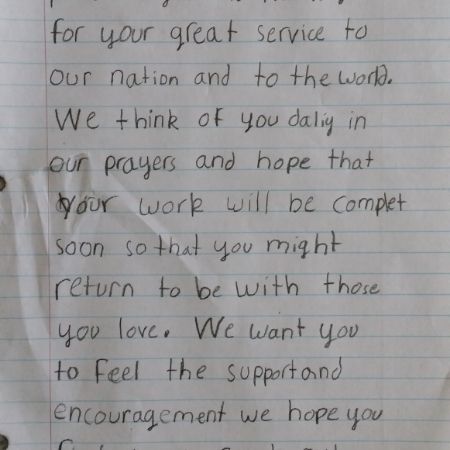 for your great service to
our nation and to the world.
We think of you daliy in
our prayers and hope that
your work will be complet
soon so that you might
return to be with those
you love. We want you
to feel the support and
encouragement we hope you